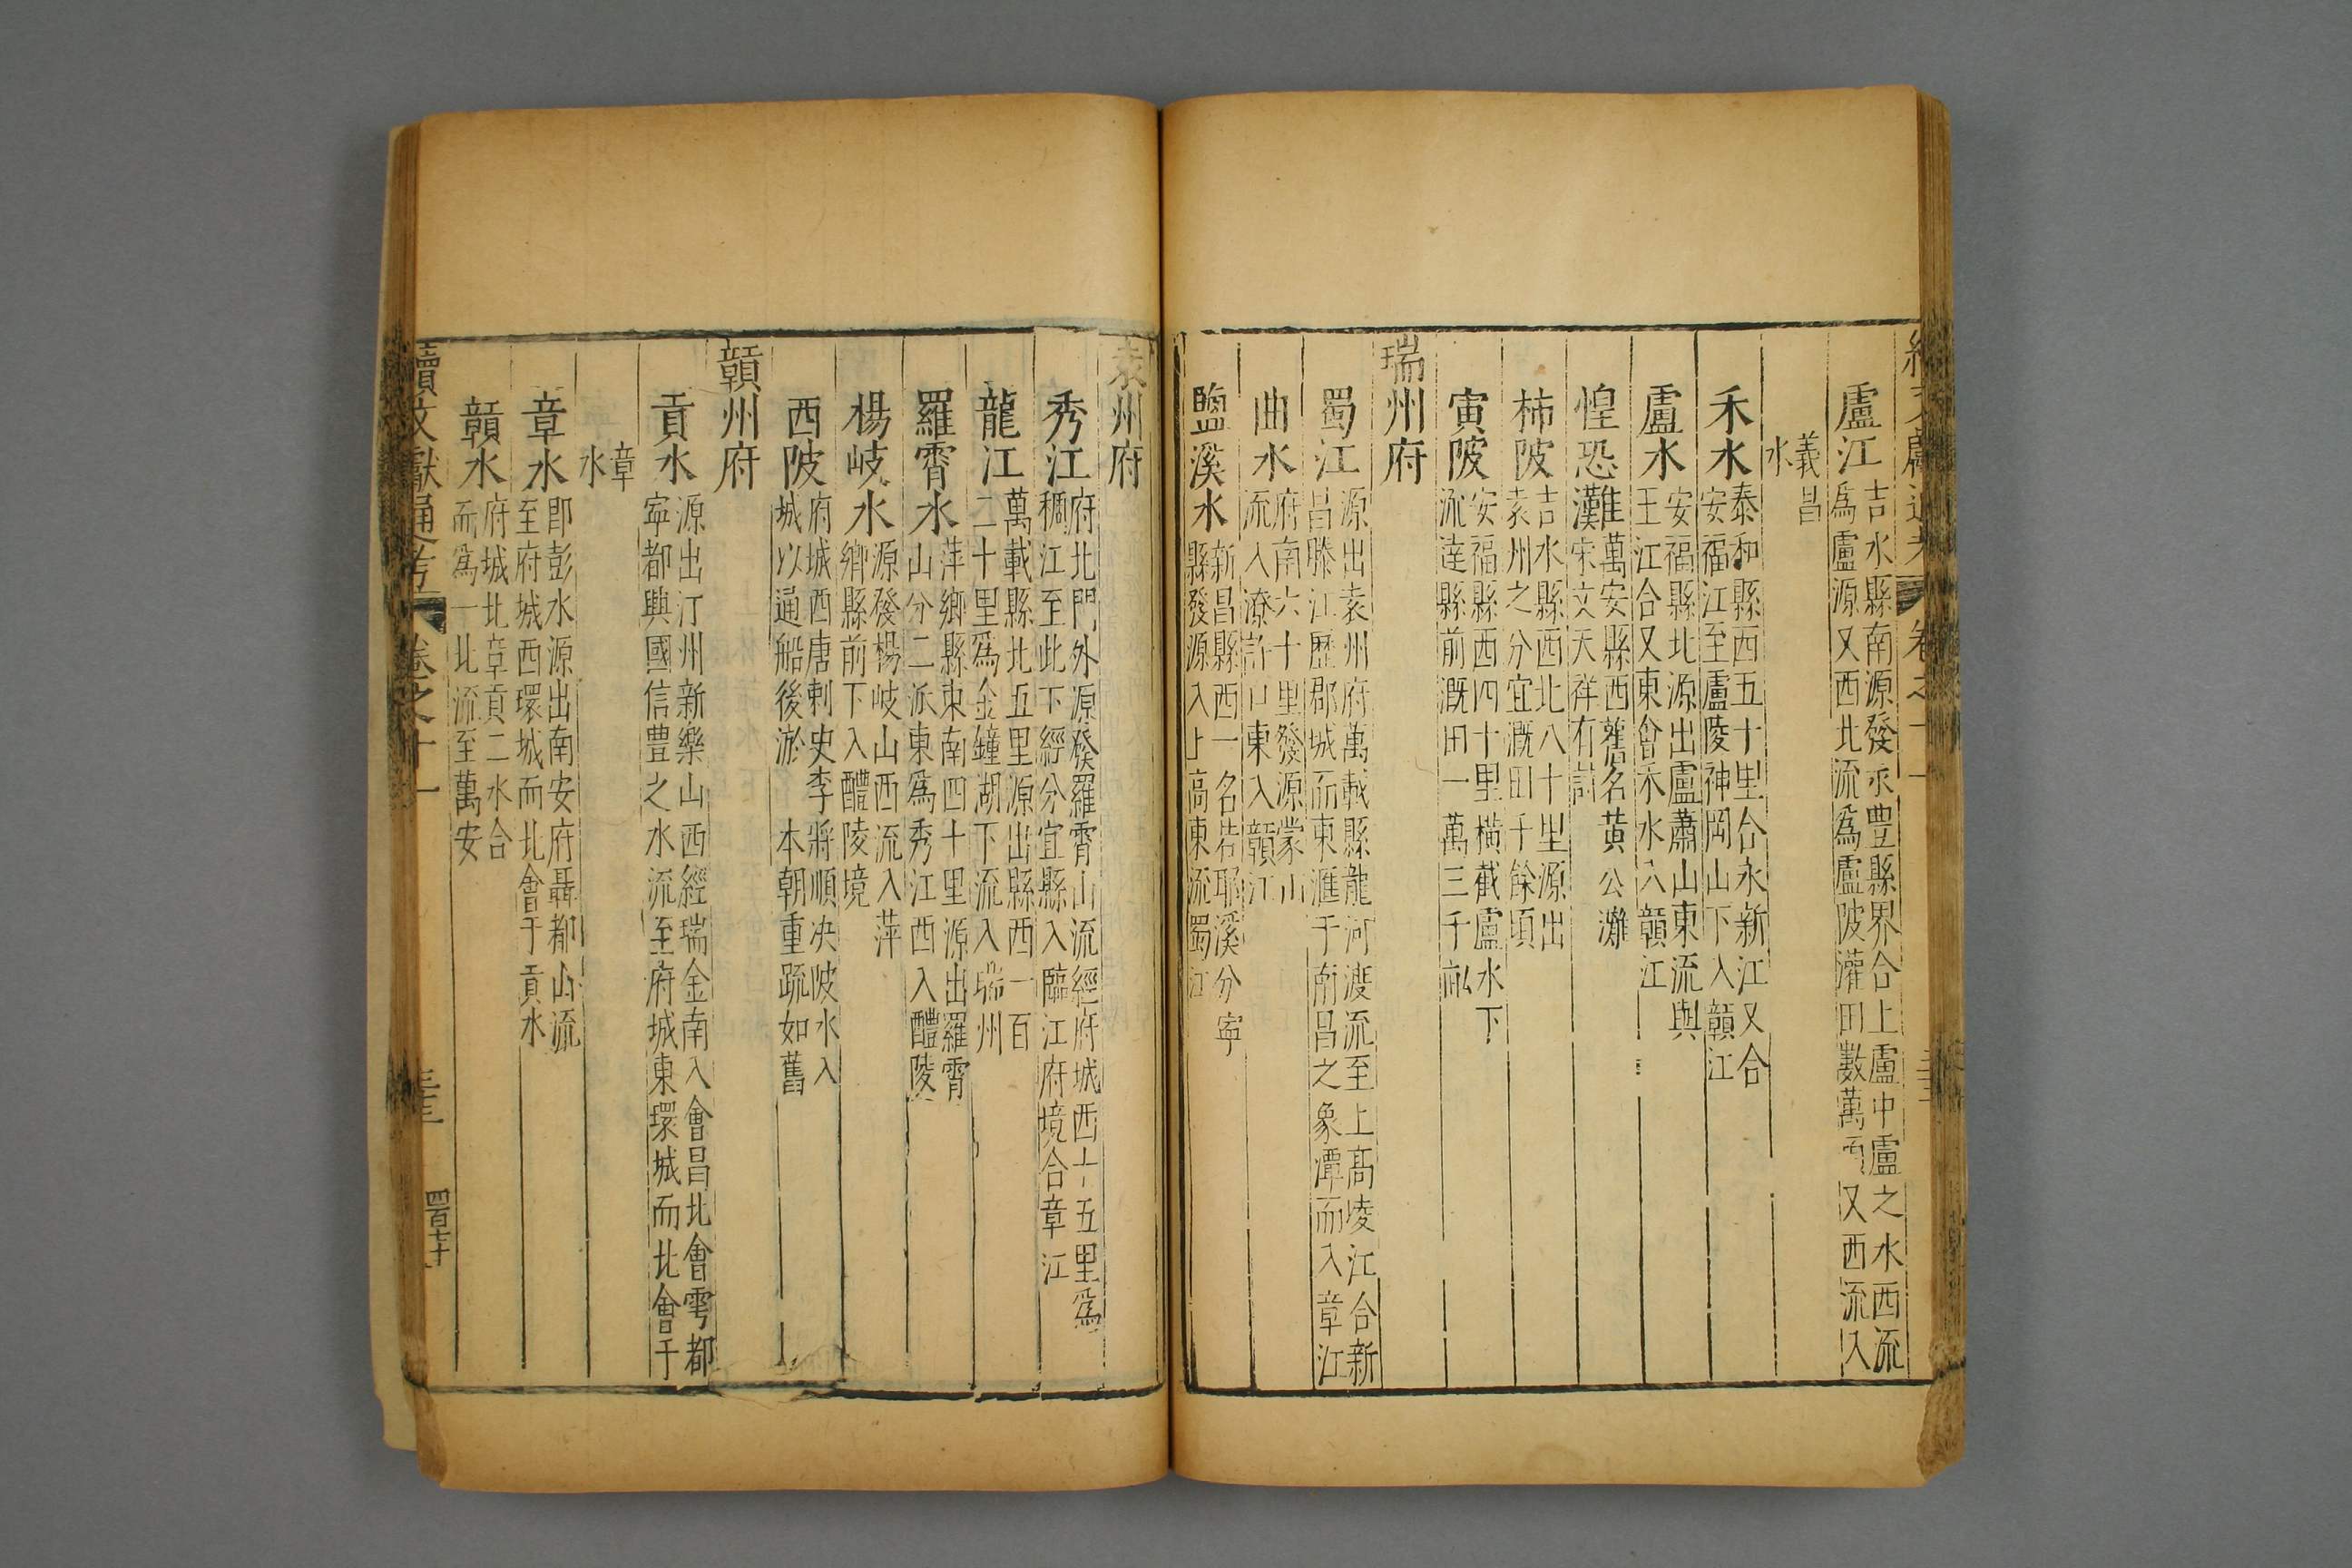 盧江吉水縣南源發永豐縣界合上盧中盧之水西流
爲盧源又西北流爲盧陂灌田數萬又西流入
義昌
水
禾水泰和縣西五十里合永新江又合
安福江至盧陵神岡山下入贛江
盧水安福縣北源出盧蕭山東流與
王江合又東會禾水入贛江
惶恐灘萬安縣西舊名黃公灘
宋文天祥有詩
柿陂吉水縣西北八十里源出
袁州之分宜漑田千餘頃
寅陂安福縣西四十里橫截盧水下
流達縣前漑田一萬三千畝
瑞州府
蜀江源出袁州府萬載縣龍河渡流至上高凌江合新
昌滕江歷郡城而東滙于南昌之象潭而入章江
曲水府南六十里發源蒙山
流入潦許口東入贛江
鹽溪水新昌縣西一名若耶溪分寧
縣發源入上高東流蜀江
袁州府
秀江府北門外源發羅霄山流經府城西十五里爲
稠江至此下經分宜縣入臨江府境合章江
龍江萬載縣北五里源出縣西一百
二十里爲金鐘湖下流入瑞州
羅霄水萍鄉縣東南四十里源出羅霄
山分二派東爲秀江西入醴陵
楊岐水源發楊岐山西流入萍
鄉縣前下入醴陵境
西陂府城西唐刺史李將順决陂水入
城以通船後淤　本朝重䟽如舊
贛州府
貢水源出汀州新樂山西經瑞金南入會昌北會雩都
寧都興國信豐之水流至府城東環城而北會于
章
水
章水即彭水源出南安府聶都山流
至府城西環城而北會于貢水
贛水府城北章貢二水合
而爲一北流至萬安
續文獻通考　卷之十一
四百七十